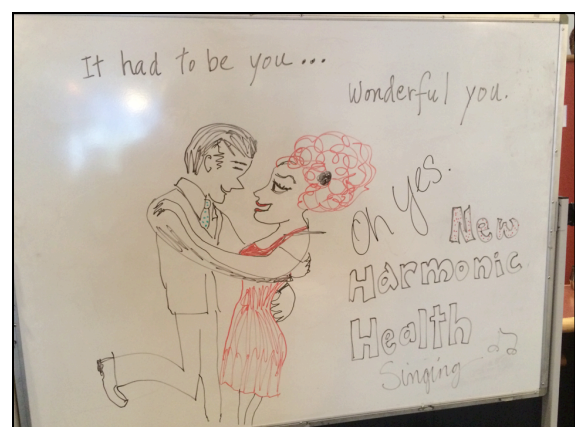 It had to be you...
Wonderful you.
Oh yes.
New
Harmonic
Health
Singing